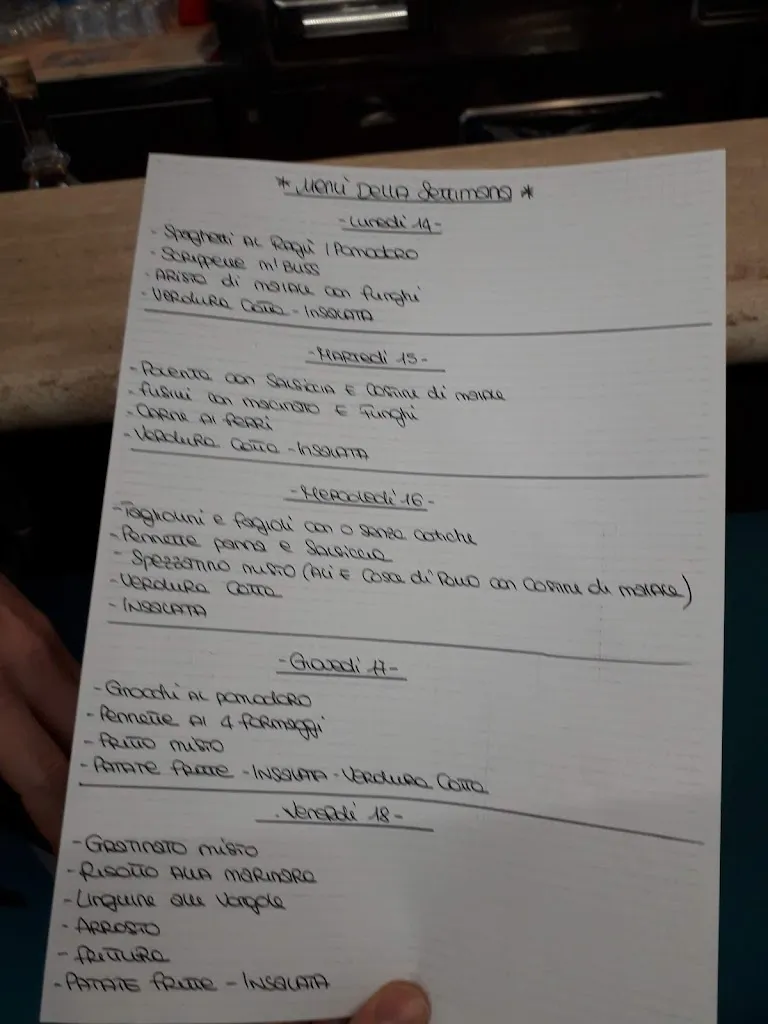 * Menù Della Settimana *
- Lunedì 14 -
- Spaghetti al Ragù / Pomodoro
- Scrippelle m'Buss
- Arista di maiale con funghi
- Verdura Cotta - Insalata
- Martedì 15 -
- Polenta con Salsiccia e Costine di maiale
- fusilli con macinato e Funghi
- Carne ai ferri
- Verdura Cotta - Insalata
- Mercoledì 16 -
- Tagliolini e fagioli con o senza cotiche
- Pennette panna e Salsiccia
- Spezzatino misto (Ali e Cosce di Pollo con Costine di maiale)
- Verdura Cotta
- Insalata
- Giovedì 17 -
- Gnocchi al pomodoro
- Pennette ai 4 formaggi
- fritto misto
- Patate fritte - Insalata - Verdura Cotta
- Venerdì 18 -
- Gratinato misto
- Risotto alla marinara
- Linguine alle vongole
- Arrosto
- frittura
- Patate fritte - Insalata